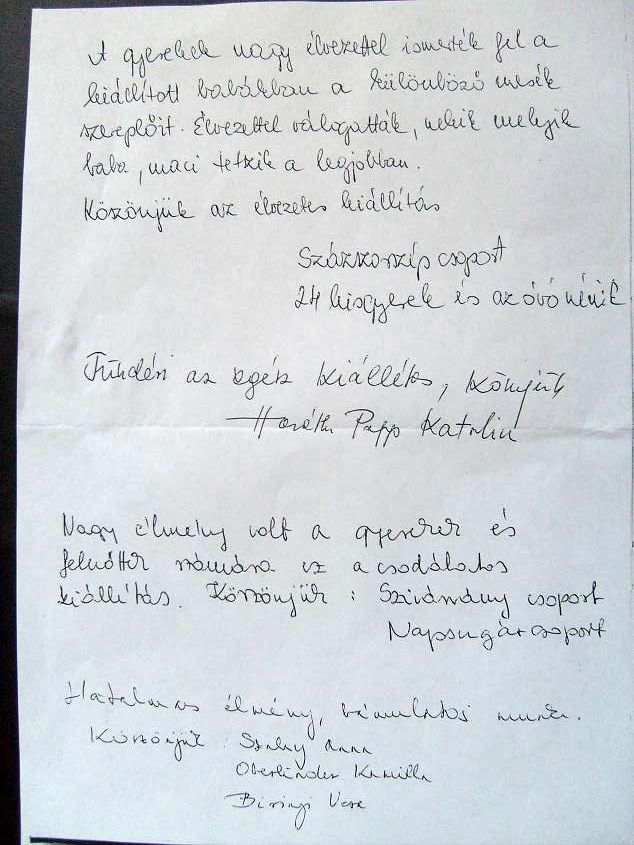 A gyerekek nagy élvezettel ismerték fel a
kiállított babákban a különböző mesék
szereplőit. Élvezettel válogatták, nekik melyik
baba, maci tetszik a legjobban.
Köszönjük az élvezetes kiállítás
Százszorszép csoport
24 kisgyerek és az óvó nénik
Tündéri az egész kiállítás,
Papp Katalin
Nagy élmény volt a gyerekek és
felnőttek számára ez a csodálatos
kiállítás. Köszönjük: Szivárvány csoport
Napsugár csoport
Hatalmas élmény, bámulatos munka.
Köszönjük: Anna
Oberländer Kamilla
Biringi Vera